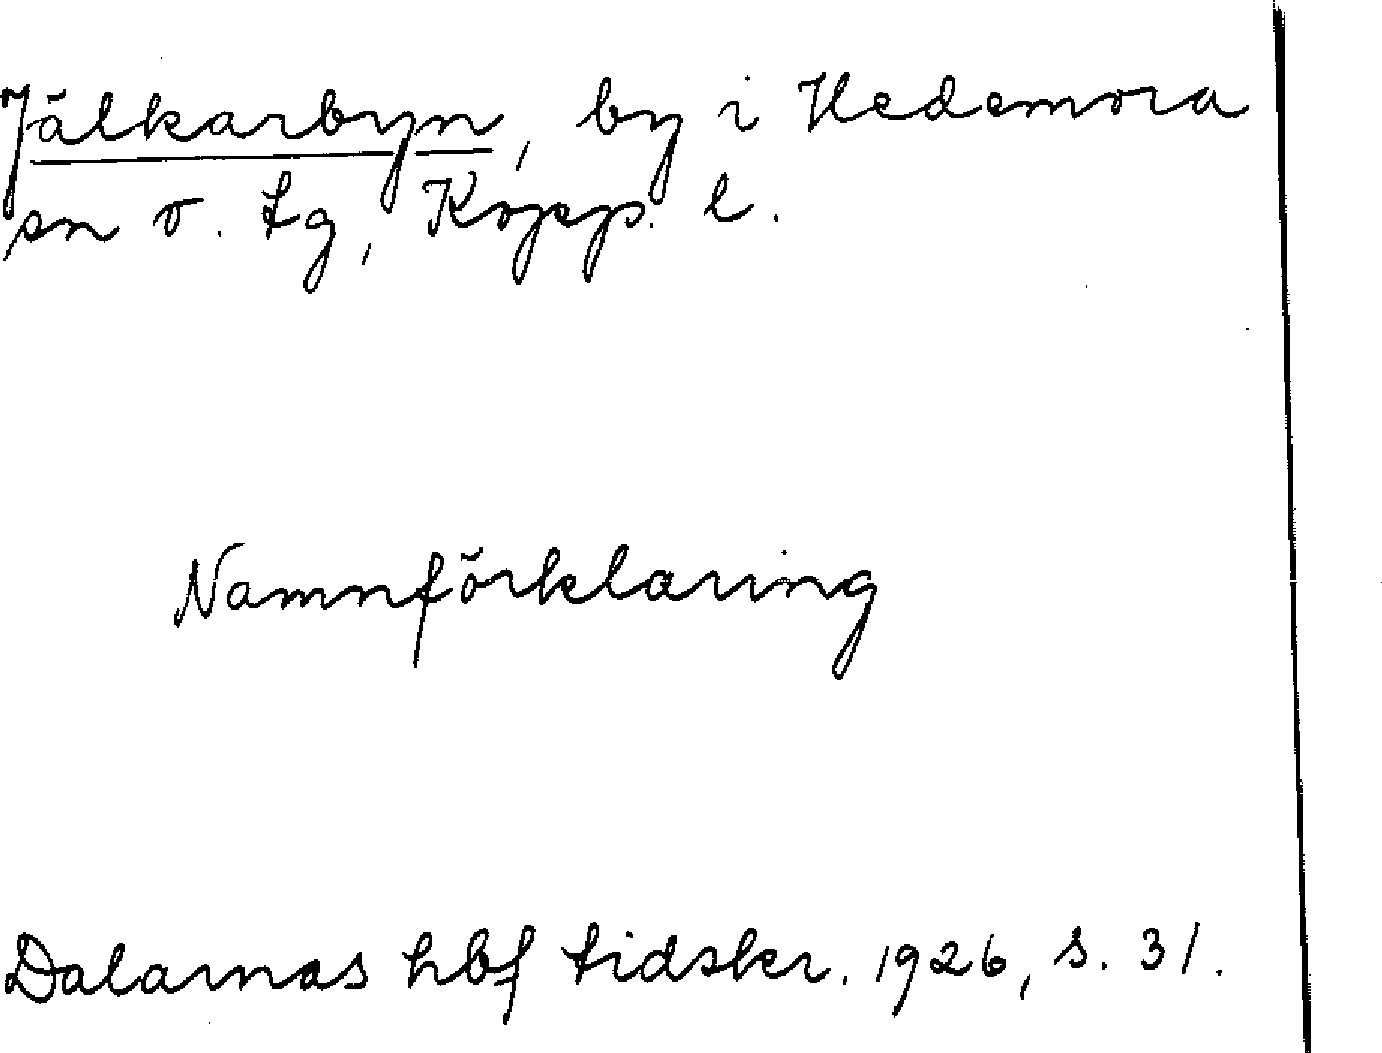 Jälkarbyn, by i Hedemora
sn o. tg, Kopp. l.
Namnförklaring
Dalarnas hbf tidskr. 1926, s. 31.